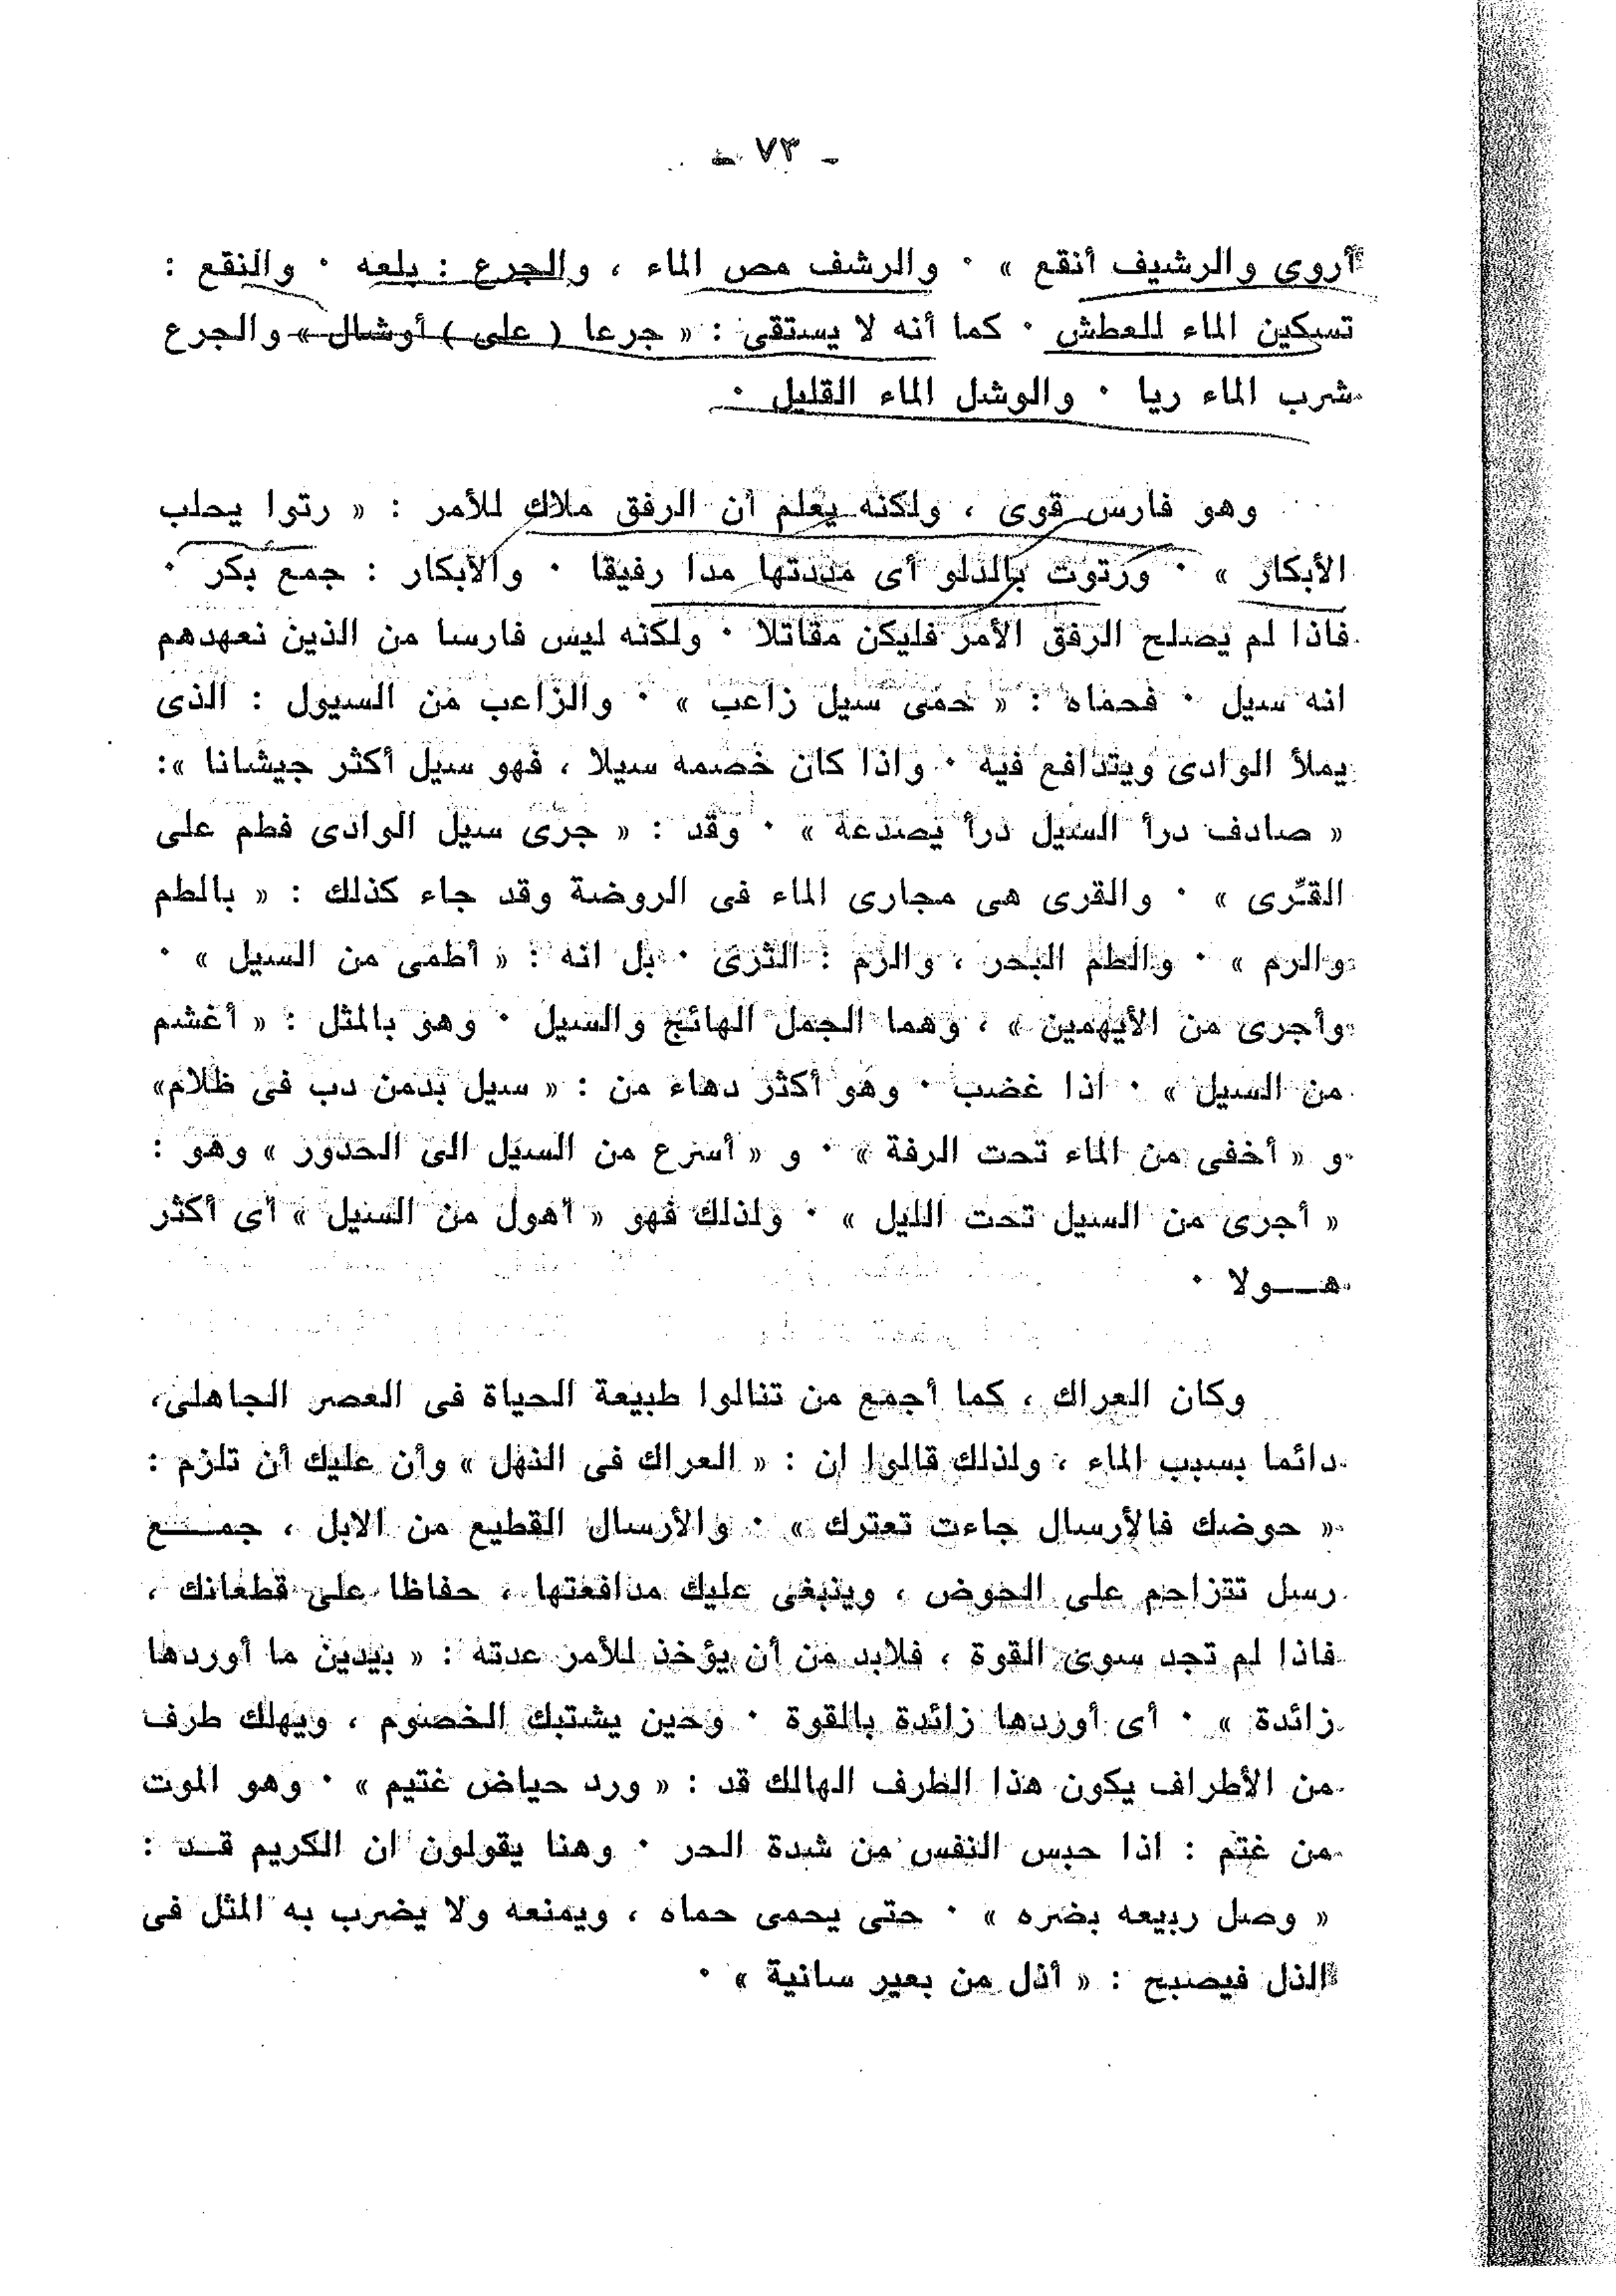 ـ ٧٣ ـ
أروى والرشيف أنقع » ٠ والرشف مص الماء ، والجرع : بلعه ٠ والنقع :
تسكين الماء للعطش ٠ كما أنه لا يستقى : « جرعا ( على ) أوشال » والجرع
شرب الماء ريا ٠ والوشل الماء القليل ٠
وهو فارس قوى ، ولكنه يعلم أن الرفق ملاك للأمر : « رتوا يحلب
الأبكار » ٠ ورتوت بالدلو أى مددتها مدا رفيقا ٠ والأبكار : جمع بكر ٠
فاذا لم يصلح الرفق الأمر فليكن مقاتلا ٠ ولكنه ليس فارسا من الذين نعهدهم
انه سيل ٠ فحماه : « حمى سيل زاعب » ٠ والزاعب من السيول : الذى
يملأ الوادى ويتدافع فيه ٠ واذا كان خصمه سيلا ، فهو سيل أكثر جيشانا »:
« صادف درأ السيل درأ يصدعه » ٠ وقد : « جرى سيل الوادى فطم على
القرى » ٠ والقرى هى مجارى الماء فى الروضة وقد جاء كذلك : « بالطم
والرم » ٠ والطم البحر ، والرم : الثرى ٠ بل انه : « أطمى من السيل » ٠
وأجرى من الأيهمين » ، وهما الجمل الهائج والسيل ٠ وهو بالمثل : « أغشم
من السيل » ٠ اذا غضب ٠ وهو أكثر دهاء من : « سيل بدمن دب فى ظلام»
و « أخفى من الماء تحت الرفة » ٠ و « أسرع من السيل الى الحدور » وهو :
« أجرى من السيل تحت الليل » ٠ ولذلك فهو « أهول من السيل » أى أكثر
هــولا ٠
وكان العراك ، كما أجمع من تنالوا طبيعة الحياة فى العصر الجاهلى،
دائما بسبب الماء ، ولذلك قالوا ان : « العراك فى النهل » وأن عليك أن تلزم :
« حوضك فالأرسال جاءت تعترك » ٠ والأرسال القطيع من الابل ، جمــع
رسل تتزاحم على الحوض ، وينبغى عليك مدافعتها ، حفاظا على قطعانك ،
فاذا لم تجد سوى القوة ، فلابد من أن يؤخذ للأمر عدته : « بيدين ما أوردها
زائدة » ٠ أى أوردها زائدة بالقوة ٠ وحين يشتبك الخصوم ، ويهلك طرف
من الأطراف يكون هذا الطرف الهالك قد : « ورد حياض غتيم » ٠ وهو الموت
من غتم : اذا حبس النفس من شدة الحر ٠ وهنا يقولون ان الكريم قــد :
« وصل ربيعه بضره » ٠ حتى يحمى حماه ، ويمنعه ولا يضرب به المثل فى
الذل فيصبح : « أذل من بعير سانية » ٠